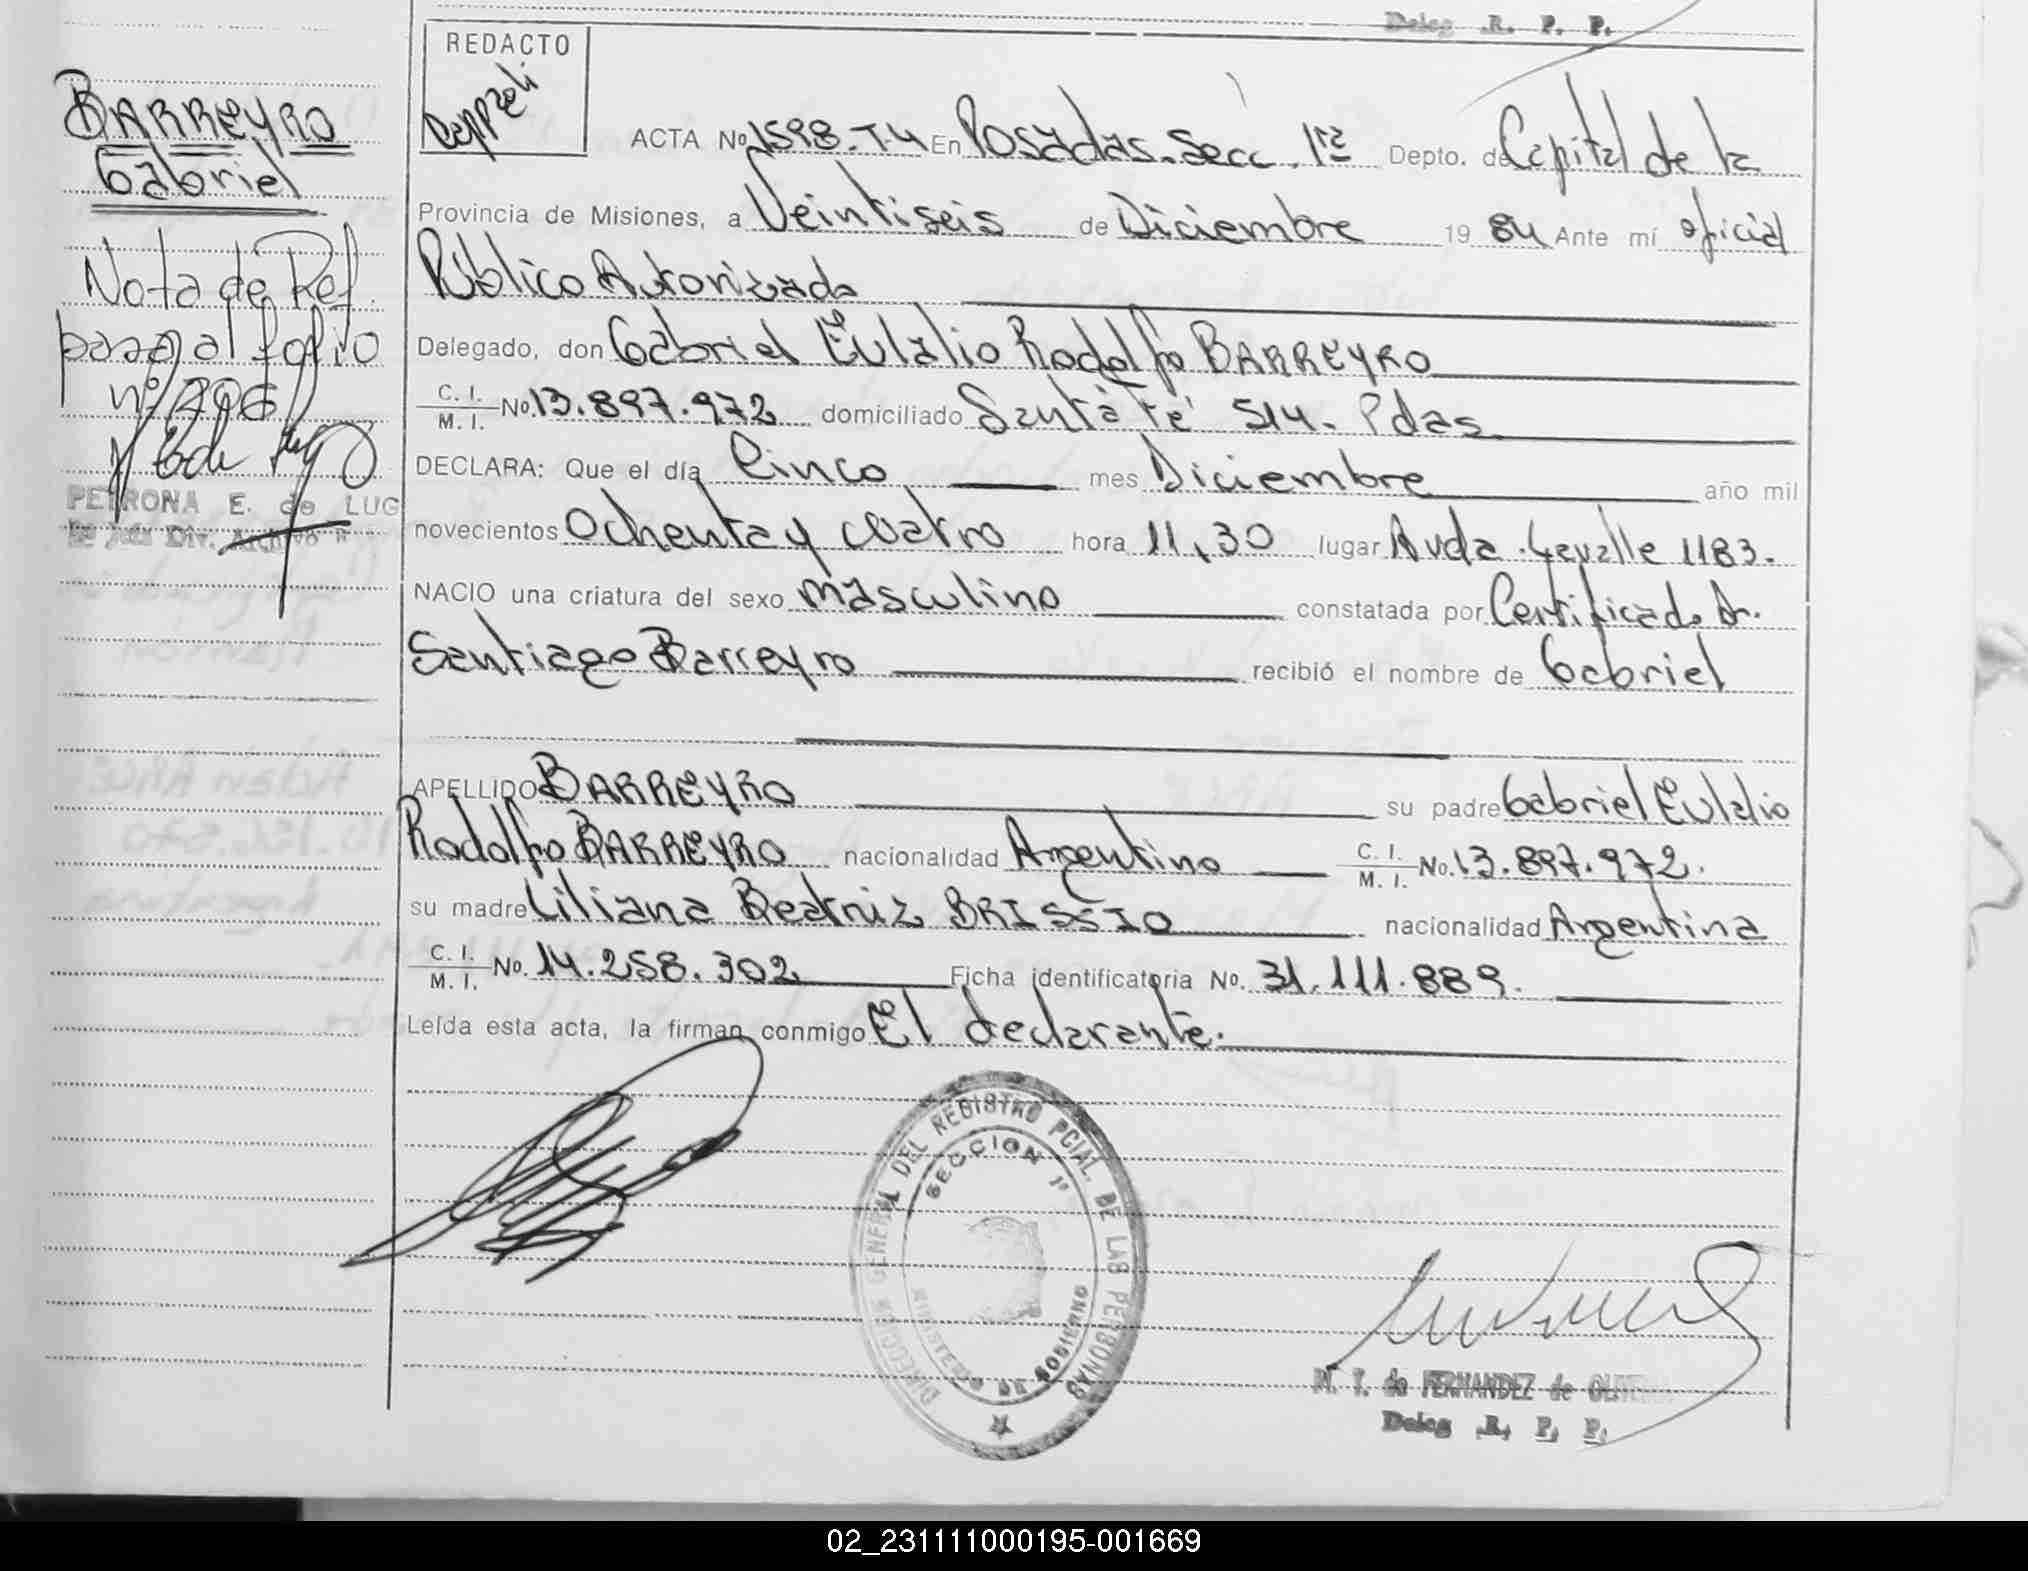 Deleg. R. P. P.
REDACTO
BARREYRO
Gabriel
Nota de Ref.
pasa al folio
nº 206
PETRONA E. de LUG
ACTA No 1598-T4 En Posadas. Secc. 1ra Depto. de Capital de la
Provincia de Misiones, a Veintiseis de Diciembre 19 84 Ante mí oficial
Público Autorizado
Delegado, don Gabriel Eulalio Rodolfo BARREYRO
C. I.
M. I. No. 13.897.972 domiciliado Santa Fé 514. Pdas.
DECLARA: Que el día Cinco mes Diciembre año mil
novecientos Ochenta y cuatro hora 11,30 lugar Avda. Lavalle 1183.
NACIO una criatura del sexo masculino constatada por Certificado Dr.
Santiago Barreyro recibió el nombre de Gabriel
APELLIDO BARREYRO su padre Gabriel Eulalio
Rodolfo BARREYRO nacionalidad Argentino C. I.
M. I. No. 13.897.972.
su madre Liliana Beatriz BRISSIO nacionalidad Argentina
C. I.
M. I. No. 14.258.302 Ficha identificatoria No. 31.111.889.
Leída esta acta, la firman conmigo El declarante.
DIRECCION GENERAL DEL REGISTRO PCIAL. DE LAS PERSONAS
SECCION 1ª
MINISTERIO DE GOBIERNO
M. T. de FERNANDEZ de
Deleg. R. P. P.
02_231111000195-001669